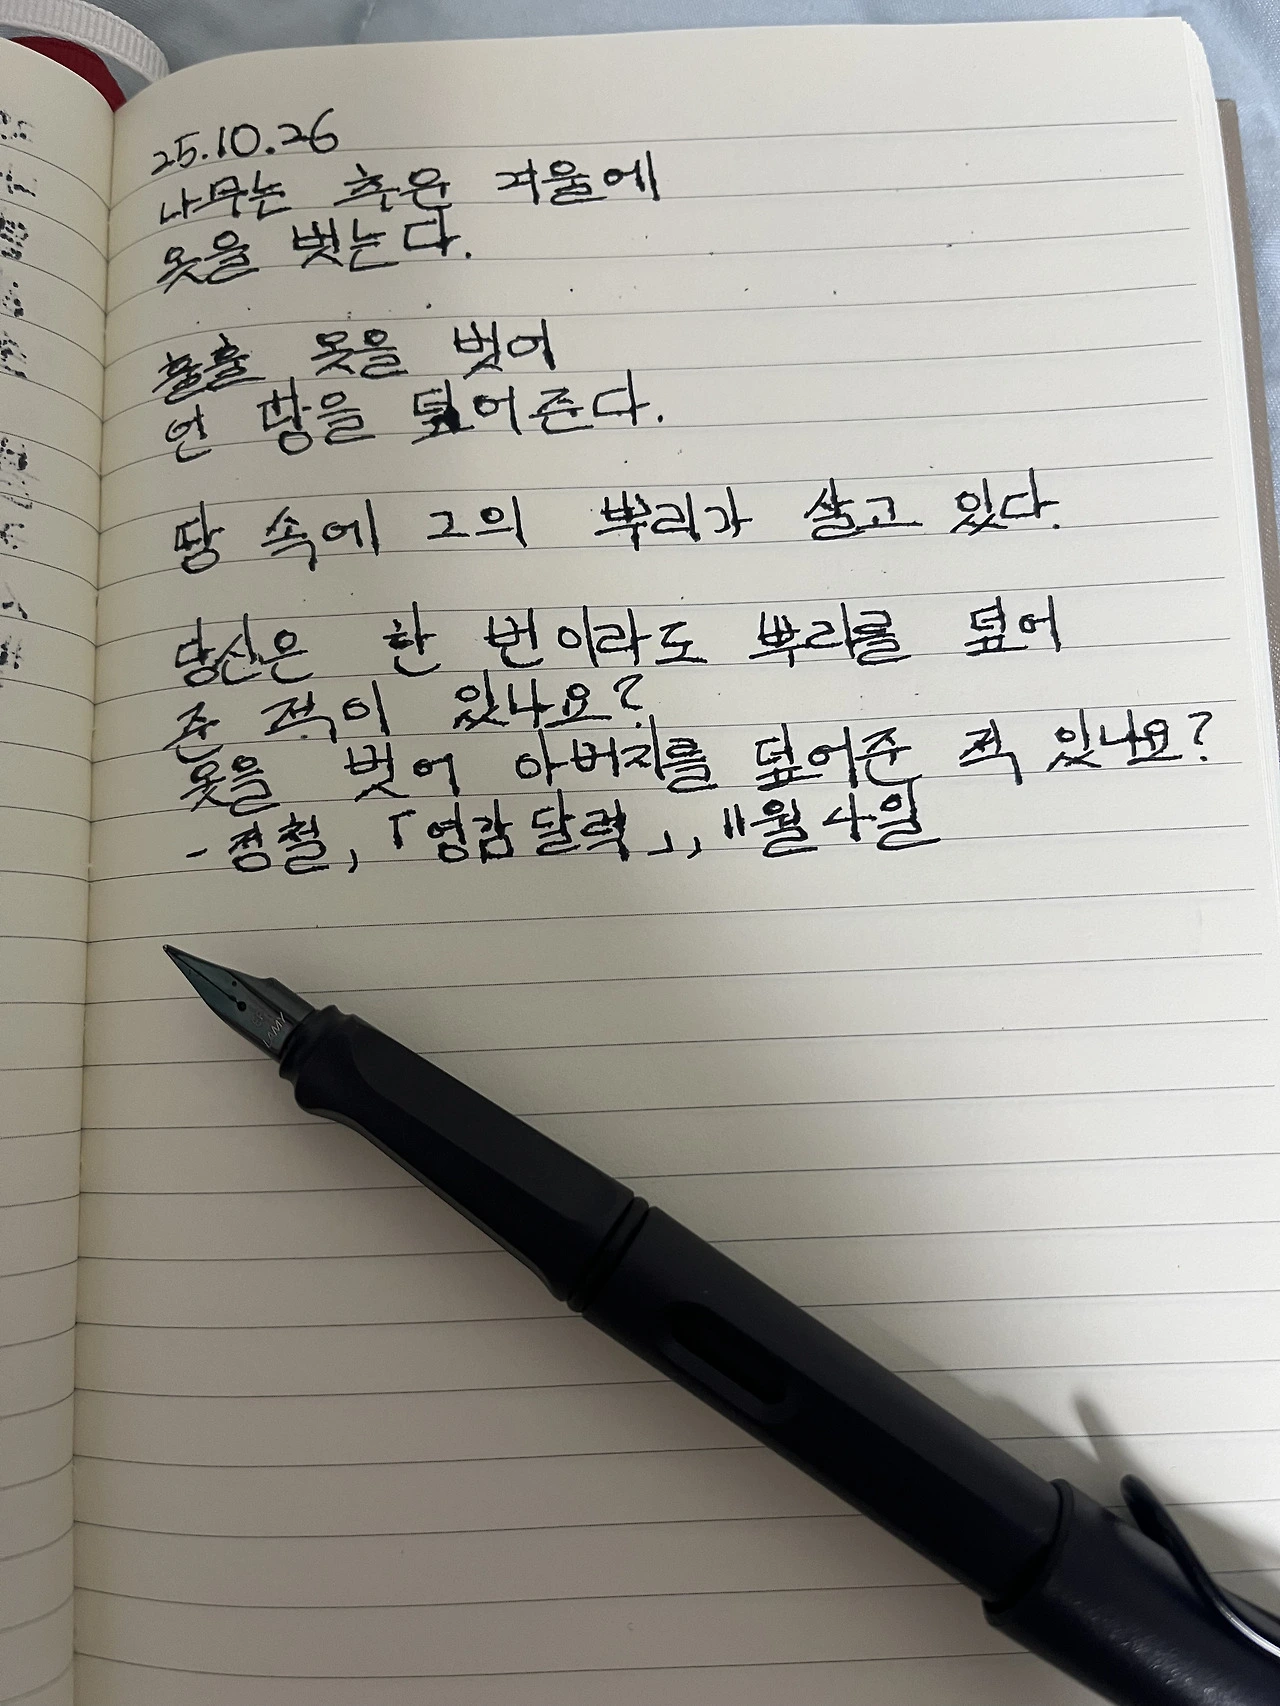 25.10.26
나무는 추운 겨울에
옷을 벗는다.
훌훌 옷을 벗어
언 땅을 덮어준다.
땅 속에 그의 뿌리가 살고 있다.
당신은 한 번이라도 뿌리를 덮어
준 적이 있나요?
옷을 벗어 아버지를 덮어준 적 있나요?
- 정철, 「영감달력」, 11월 4일
LAMY